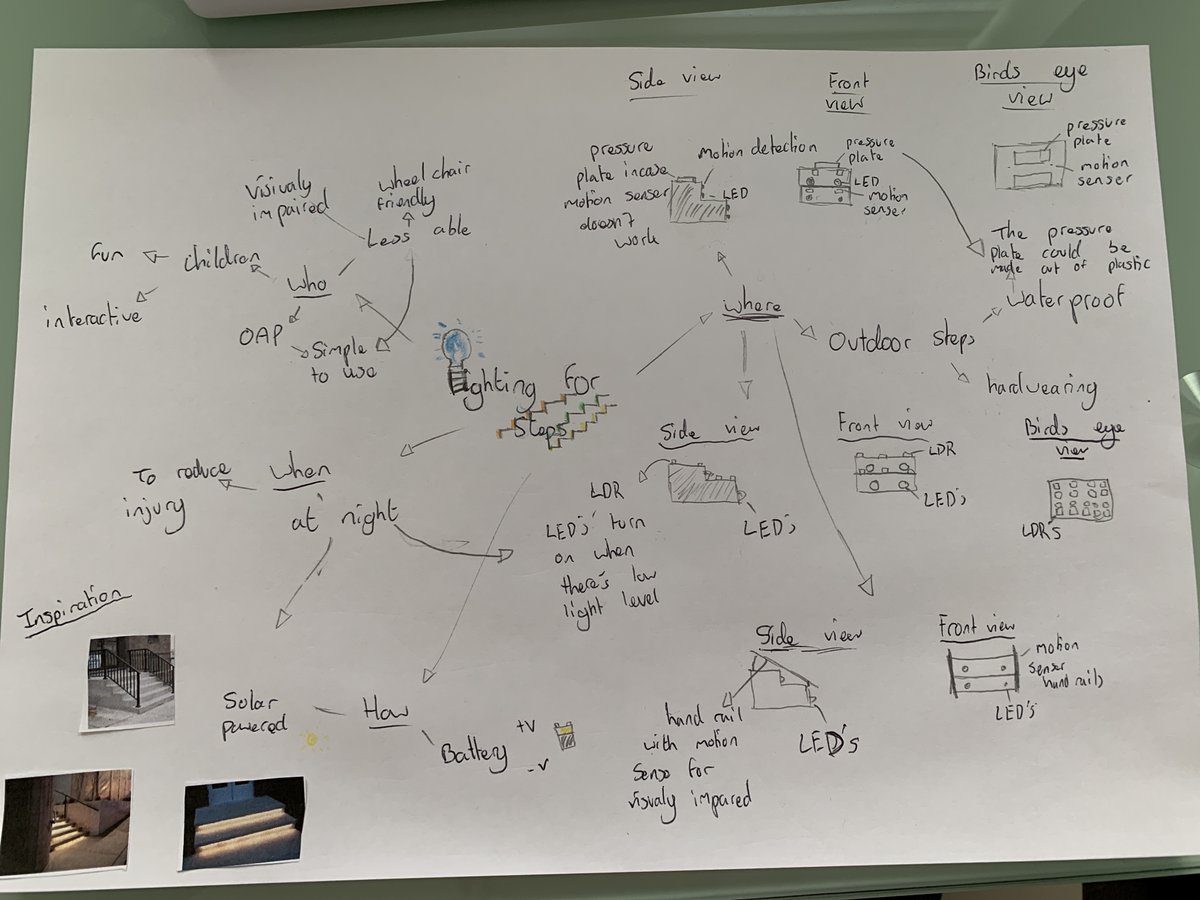 Side view
Front
view
Birds eye
view
pressure
plate incase
motion senser
doesn't
work
Motion detection
LED
pressure
plate
LED
motion
senser
pressure
plate
motion
senser
The pressure
plate could be
made out of plastic
Visivaly
impaired
wheel chair
friendly
Less able
Fun
Children
Who
interactive
OAP
Simple
to use
Lighting for
Steps
where
Outdoor steps
Waterproof
hardwearing
To reduce
injury
When
at night
Side view
LDR
LED's turn
on when
there's low
light level
LED's
Front view
LDR
LED's
Birds eye
view
LDR's
Inspiration
Solar
powered
How
Battery
+V
-V
Side view
hand rail
with motion
Sense for
visualy impared
LED's
Front view
motion
senser
hand rails
LED's